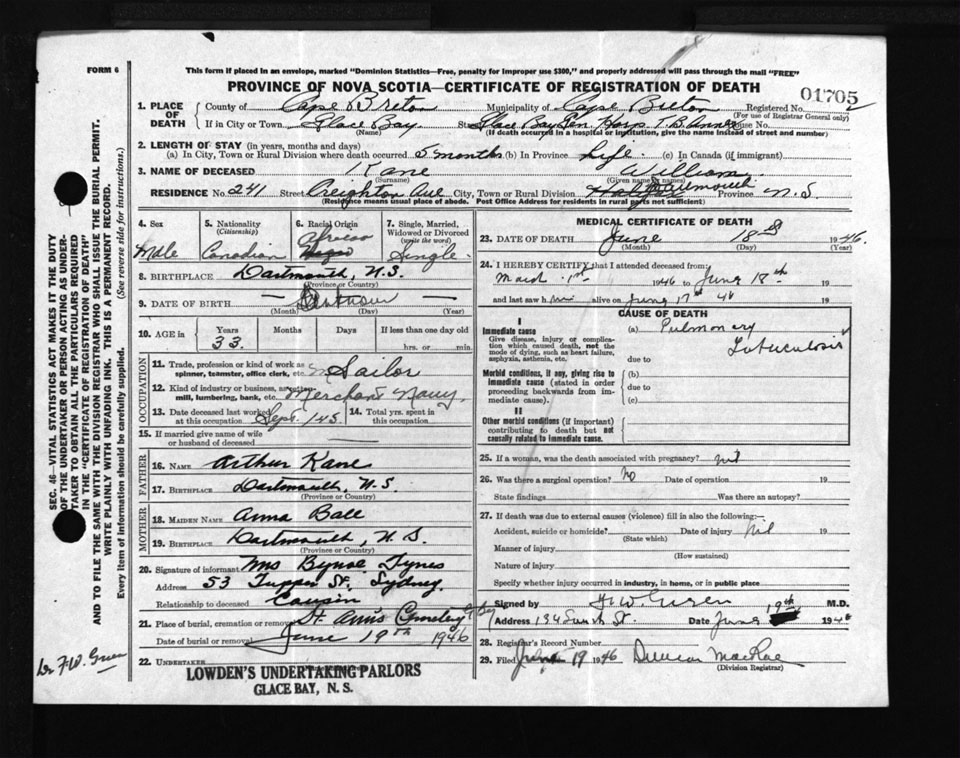 FORM 6
This form if placed in an envelope, marked "Dominion Statistics—Free, penalty for improper use $300," and properly addressed will pass through the mail "FREE"
PROVINCE OF NOVA SCOTIA—CERTIFICATE OF REGISTRATION OF DEATH
01705
1. PLACE OF DEATH
County of Cape Breton Municipality of Cape Breton Registered No.
(For use of Registrar General only)
If in City or Town Glace Bay Glace Bay Gen Hosp T.B. Annex
(Name) (If death occurred in a hospital or institution, give the name instead of street and number)
2. LENGTH OF STAY (in years, months and days)
(a) In City, Town or Rural Division where death occurred 5 months (b) In Province Life (c) In Canada (if immigrant)
3. NAME OF DECEASED Kane William
(Surname) (Given name or names)
RESIDENCE No. 241 Street Creighton Ave City, Town or Rural Division Dartmouth Province N.S
(Residence means usual place of abode. Post Office Address for residents in rural parts not sufficient)
4. Sex Male
5. Nationality (Citizenship) Canadian
6. Racial Origin
7. Single, Married, Widowed or Divorced (write the word) Single
8. BIRTHPLACE Dartmouth, N.S.
(Province or Country)
9. DATE OF BIRTH — Unknown —
(Month) (Day) (Year)
10. AGE in Years Months Days If less than one day old
33. hrs. or min.
OCCUPATION
11. Trade, profession or kind of work as spinner, teamster, office clerk, etc. Sailor
12. Kind of industry or business, as cotton-mill, lumbering, bank, etc. Merchant Navy.
13. Date deceased last worked at this occupation Sept. 1945
14. Total yrs. spent in this occupation
15. If married give name of wife or husband of deceased —
FATHER
16. NAME Arthur Kane
17. BIRTHPLACE Dartmouth, N.S.
(Province or Country)
MOTHER
18. MAIDEN NAME Anna Ball
19. BIRTHPLACE Dartmouth, N.S.
(Province or Country)
20. Signature of informant Mrs Tynes
Address 53 Tupper St. Sydney
Relationship to deceased Cousin
21. Place of burial, cremation or removal St. Ann's Cemetery
Date of burial or removal June 19th 1946
22. UNDERTAKER
LOWDEN'S UNDERTAKING PARLORS
GLACE BAY, N. S.
MEDICAL CERTIFICATE OF DEATH
23. DATE OF DEATH June 18 1946.
(Month) (Day) (Year)
24. I HEREBY CERTIFY that I attended deceased from:
March 1st 1946 to June 18th 19
and last saw him alive on June 17th 46 19
CAUSE OF DEATH
I
Immediate cause
Give disease, injury or complication which caused death, not the mode of dying, such as heart failure, asphyxia, asthenia, etc.
(a) Pulmonary
due to
Morbid conditions, if any, giving rise to immediate cause (stated in order proceeding backwards from immediate cause).
(b)
due to
(c)
II
Other morbid conditions (if important) contributing to death but not causally related to immediate cause.
25. If a woman, was the death associated with pregnancy? nil
26. Was there a surgical operation? No Date of operation 19
State findings Was there an autopsy?
27. If death was due to external causes (violence) fill in also the following:—
Accident, suicide or homicide? Date of injury Nil 19
(State which)
Manner of injury
(How sustained)
Nature of injury
Specify whether injury occurred in industry, in home, or in public place
Signed by M.D.
Address St. Date June 19th 1946
28. Registrar's Record Number
29. Filed June 19 1946 Duncan MacRae
(Division Registrar)
SEC. 46—VITAL STATISTICS ACT MAKES IT THE DUTY
OF THE UNDERTAKER OR PERSON ACTING AS UNDERTAKER TO OBTAIN ALL THE PARTICULARS REQUIRED
IN THE "CERTIFICATE OF REGISTRATION OF DEATH"
AND TO FILE THE SAME WITH THE DIVISION REGISTRAR WHO SHALL ISSUE THE BURIAL PERMIT.
WRITE PLAINLY WITH UNFADING INK. THIS IS A PERMANENT RECORD.
Every item of information should be carefully supplied. (See reverse side for instructions.)